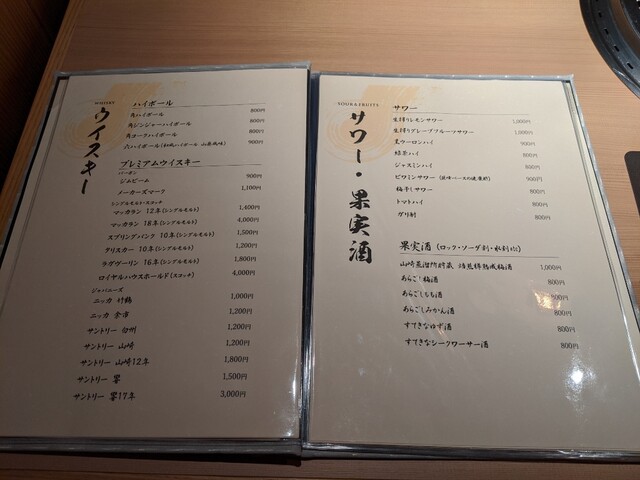 WHISKY
ウイスキー
ハイボール
角ハイボール 800円
角ジンジャーハイボール 800円
角コークハイボール 800円
六ハイボール(和風ハイボール 山椒風味) 900円
プレミアムウイスキー
バーボン
ジムビーム 900円
メーカーズマーク 1,100円
シングルモルト・スコッチ
マッカラン 12年(シングルモルト) 1,400円
マッカラン 18年(シングルモルト) 4,000円
スプリングバンク 10年(シングルモルト) 1,500円
タリスカー 10年(シングルモルト) 1,200円
ラガヴーリン 16年(シングルモルト) 1,800円
ロイヤルハウスホールド(スコッチ) 4,000円
ジャパニーズ
ニッカ 竹鶴 1,000円
ニッカ 余市 1,200円
サントリー 白州 1,200円
サントリー 山崎 1,200円
サントリー 山崎12年 1,800円
サントリー 響 1,500円
サントリー 響17年 3,000円
SOUR&FRUITS
サワー・果実酒
サワー
生搾りレモンサワー 1,000円
生搾りグレープフルーツサワー 1,000円
黒ウーロンハイ 900円
緑茶ハイ 800円
ジャスミンハイ 800円
ビワミンサワー 900円
梅干しサワー 800円
トマトハイ 800円
ダリ酎 800円
果実酒 (ロック・ソーダ割・水割り)
山崎蒸溜所貯蔵 焙煎樽熟成梅酒 1,000円
あらごし梅酒 800円
あらごしもも酒 800円
あらごしみかん酒 800円
すてきなゆず酒 800円
すてきなシークワーサー酒 800円